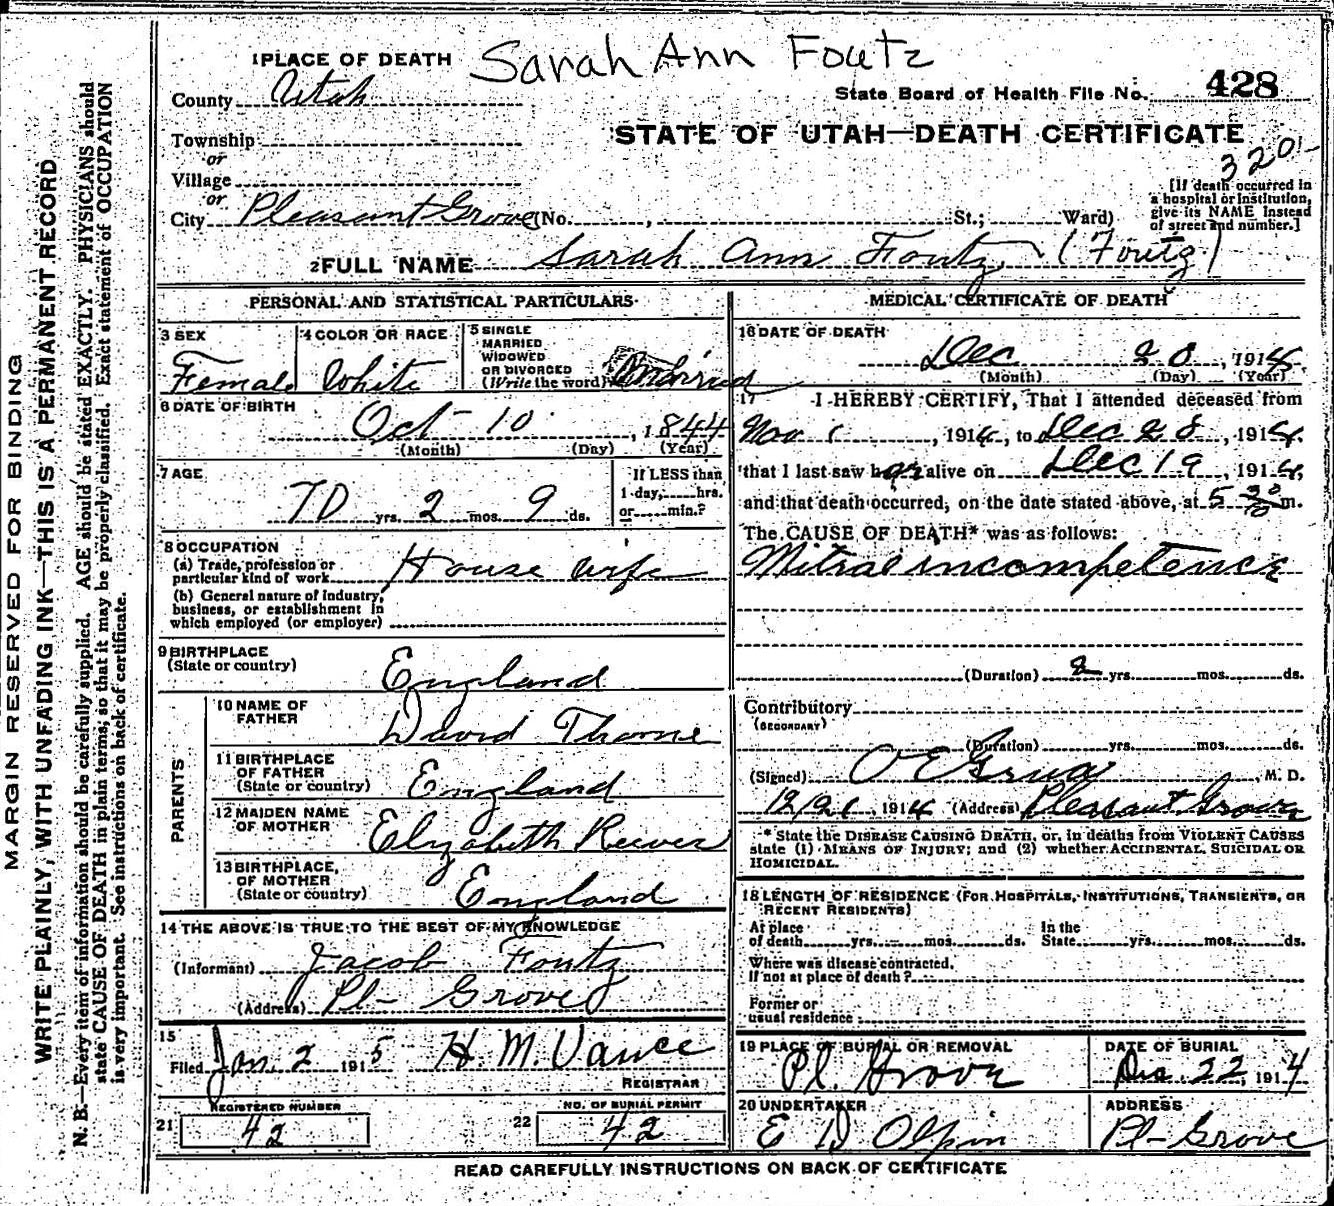 MARGIN RESERVED FOR BINDING
WRITE PLAINLY, WITH UNFADING INK—THIS IS A PERMANENT RECORD
N. B.—Every item of information should be carefully supplied. AGE should be stated EXACTLY. PHYSICIANS should
state CAUSE OF DEATH in plain terms, so that it may be properly classified. Exact statement of OCCUPATION
is very important. See instructions on back of certificate.
Sarah Ann Foutz
1 PLACE OF DEATH
County Utah
State Board of Health File No. 428
STATE OF UTAH—DEATH CERTIFICATE
320
Township
or
Village
or
City Pleasant Grove (No. , St.; Ward)
[If death occurred in
a hospital or institution,
give its NAME instead
of street and number.]
2 FULL NAME Sarah Ann Foutz (Foutz)
PERSONAL AND STATISTICAL PARTICULARS
3 SEX
Female
4 COLOR OR RACE
White
5 SINGLE
MARRIED
WIDOWED
OR DIVORCED
(Write the word) Married
6 DATE OF BIRTH
Oct 10 , 1844
(Month) (Day) (Year)
7 AGE
70 yrs. 2 mos. 9 ds.
If LESS than
1 day, hrs.
or min.?
8 OCCUPATION
(a) Trade, profession or
particular kind of work House wife
(b) General nature of industry,
business, or establishment in
which employed (or employer)
9 BIRTHPLACE
(State or country) England
PARENTS
10 NAME OF
FATHER David Thorne
11 BIRTHPLACE
OF FATHER
(State or country) England
12 MAIDEN NAME
OF MOTHER Elizabeth Reeves
13 BIRTHPLACE,
OF MOTHER
(State or country) England
14 THE ABOVE IS TRUE TO THE BEST OF MY KNOWLEDGE
(Informant) Jacob Foutz
(Address) Pl- Grove
15
Filed Jan. 2 1915 H. M. Vance
REGISTRAR
REGISTERED NUMBER
21 42
NO. OF BURIAL PERMIT
22 42
MEDICAL CERTIFICATE OF DEATH
16 DATE OF DEATH
Dec 20 , 1914
(Month) (Day) (Year)
17 I HEREBY CERTIFY, That I attended deceased from
Nov 1 , 1914, to Dec 20 , 1914,
that I last saw her alive on Dec 19 , 1914,
and that death occurred, on the date stated above, at 5 m.
The CAUSE OF DEATH* was as follows:
Mitral incompetence
(Duration) 2 yrs. mos. ds.
Contributory
(SECONDARY)
(Duration) yrs. mos. ds.
(Signed) O E Grua , M. D.
12/21, 1914 (Address) Pleasant Grove
* State the DISEASE CAUSING DEATH, or, in deaths from VIOLENT CAUSES
state (1) MEANS OF INJURY; and (2) whether ACCIDENTAL, SUICIDAL OR
HOMICIDAL.
18 LENGTH OF RESIDENCE (FOR HOSPITALS, INSTITUTIONS, TRANSIENTS, OR
RECENT RESIDENTS)
At place
of death yrs. mos. ds.
In the
State yrs. mos. ds.
Where was disease contracted,
If not at place of death?
Former or
usual residence
19 PLACE OF BURIAL OR REMOVAL
Pl. Grove
DATE OF BURIAL
Dec. 22, 1914
20 UNDERTAKER
E D Olpin
ADDRESS
Pl- Grove
READ CAREFULLY INSTRUCTIONS ON BACK OF CERTIFICATE